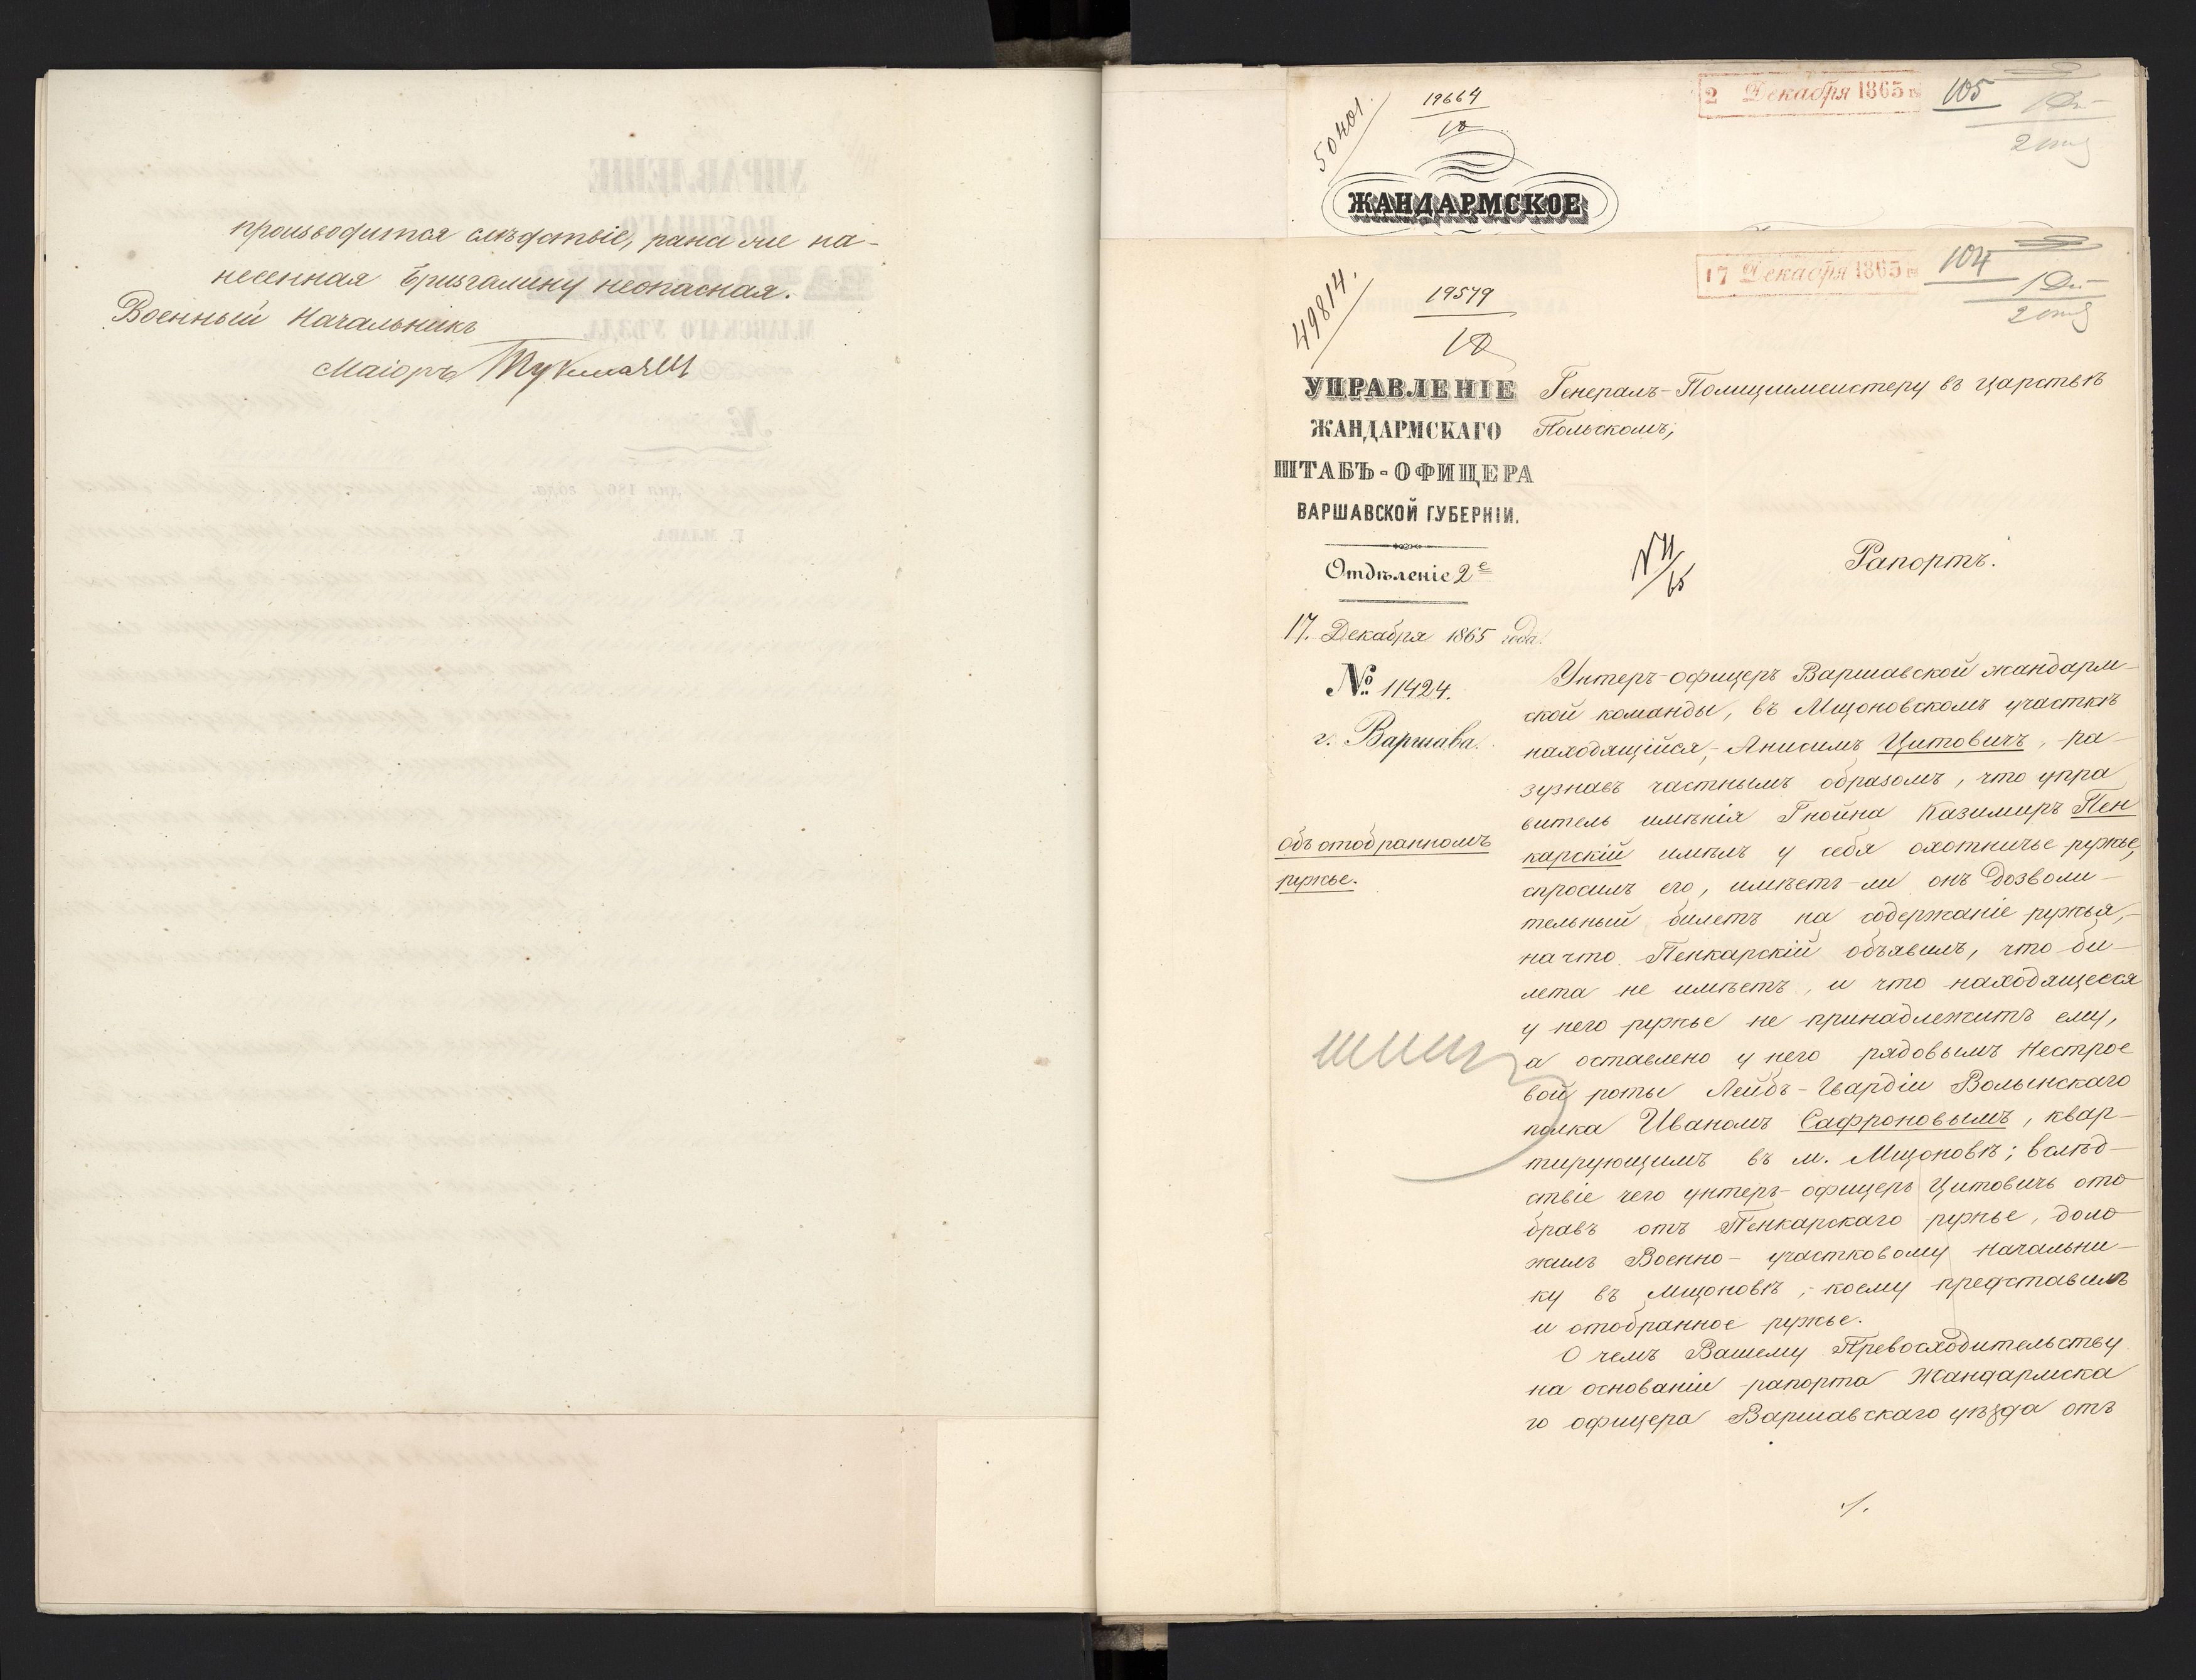 производится слѣдствіе, рана же на-
несенная Бризгалину неопасная.
Военный Начальникъ
Маіоръ
50401.
19664
10
2 Декабря 1865 г.
105
ЖАНДАРМСКОЕ
49814.
19579
10
17 Декабря 1865 г.
104
УПРАВЛЕНІЕ
ЖАНДАРМСКАГО
ШТАБЪ-ОФИЦЕРА
ВАРШАВСКОЙ ГУБЕРНІИ.
Отдѣленіе 2е
17. Декабря 1865 года.
№ 11424.
г. Варшава.
Объ отобранномъ
ружье.
Генералъ-Полицмейстеру въ Царствѣ
Польскомъ,
Рапортъ.
Унтеръ-офицеръ Варшавской жандарм-
ской команды, въ Мщоновскомъ участкѣ
находящійся, Анисимъ Цитовичъ, ра-
зузнавъ частнымъ образомъ, что упра
витель имѣнія Гнойна Казимиръ Пен
карскій имѣлъ у себя охотничье ружье,
спросилъ его, имѣетъ-ли онъ дозволи-
тельный билетъ на содержаніе ружья,-
на что Пенкарскій объявилъ, что би-
лета не имѣетъ, и что находящееся
у него ружье не принадлежитъ ему,
а оставлено у него рядовымъ Нестрое
вой роты Лейбъ-Гвардіи Волынскаго
полка Иваномъ Сафроновымъ, квар-
тирующимъ въ м. Мщоновѣ; вслѣд-
ствіе чего унтеръ-офицеръ Цитовичъ ото-
бравъ отъ Пенкарскаго ружье, доло-
жилъ Военно-участковому Начальни-
ку въ Мщоновѣ, коему представилъ
и отобранное ружье.
О чемъ Вашему Превосходительству
на основаніи рапорта Жандармска
го офицера Варшавскаго уѣзда отъ
./.